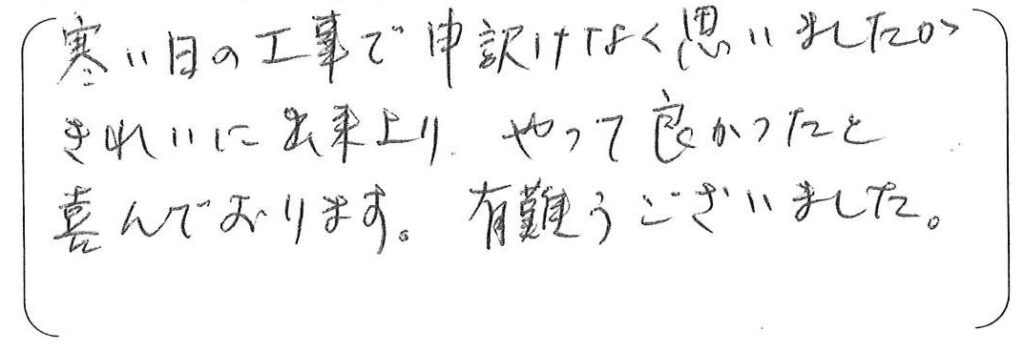 寒い日の工事で申訳けなく思いましたが
きれいに出来上り やって良かったと
喜んでおります。 有難うございました。